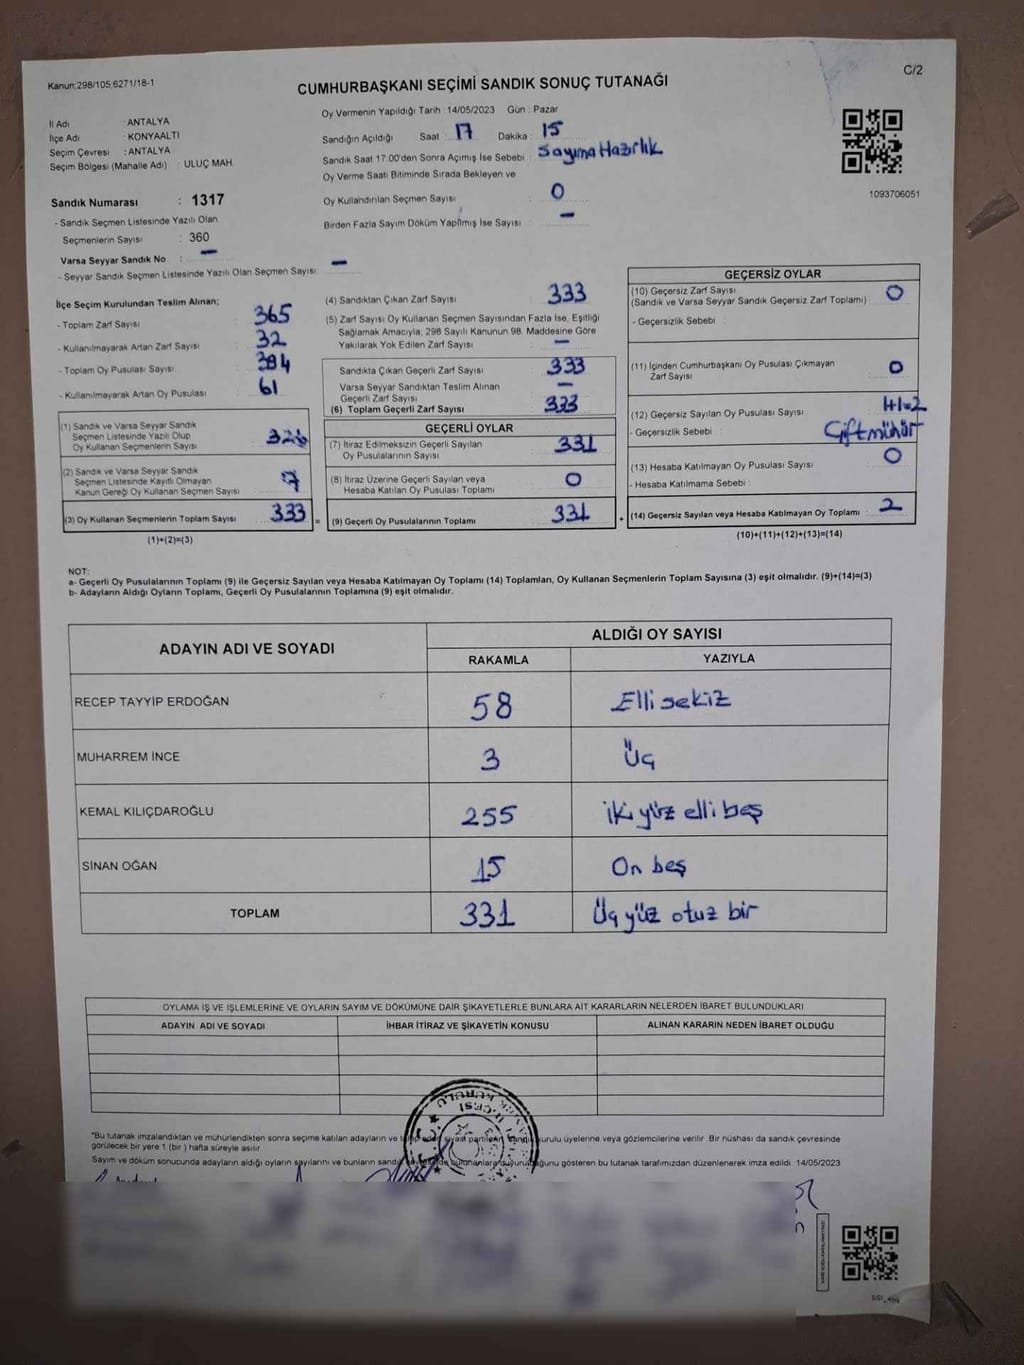 Kanun:298/105;6271/18-1
C/2
CUMHURBAŞKANI SEÇİMİ SANDIK SONUÇ TUTANAĞI
İl Adı : ANTALYA
İlçe Adı : KONYAALTI
Seçim Çevresi : ANTALYA
Seçim Bölgesi (Mahalle Adı) : ULUÇ MAH.
Sandık Numarası : 1317
- Sandık Seçmen Listesinde Yazılı Olan
Seçmenlerin Sayısı : 360
Varsa Seyyar Sandık No : —
- Seyyar Sandık Seçmen Listesinde Yazılı Olan Seçmen Sayısı: —
Oy Vermenin Yapıldığı Tarih : 14/05/2023 Gün : Pazar
Sandığın Açıldığı Saat : 17 Dakika : 15
Sandık Saat 17:00'den Sonra Açımış İse Sebebi : Sayıma Hazırlık
Oy Verme Saati Bitiminde Sırada Bekleyen ve
Oy Kullandırılan Seçmen Sayısı : 0
Birden Fazla Sayım Döküm Yapılmış İse Sayısı : —
1093706051
İlçe Seçim Kurulundan Teslim Alınan;
- Toplam Zarf Sayısı : 365
- Kullanılmayarak Artan Zarf Sayısı : 32
- Toplam Oy Pusulası Sayısı : 394
- Kullanılmayarak Artan Oy Pusulası : 61
(1) Sandık ve Varsa Seyyar Sandık
Seçmen Listesinde Yazılı Olup
Oy Kullanan Seçmenlerin Sayısı : 326
(2) Sandık ve Varsa Seyyar Sandık
Seçmen Listesinde Kayıtlı Olmayan
Kanun Gereği Oy Kullanan Seçmen Sayısı : 7
(3) Oy Kullanan Seçmenlerin Toplam Sayısı : 333 =
(1)+(2)=(3)
(4) Sandıktan Çıkan Zarf Sayısı : 333
(5) Zarf Sayısı Oy Kullanan Seçmen Sayısından Fazla İse, Eşitliği
Sağlamak Amacıyla, 298 Sayılı Kanunun 98. Maddesine Göre
Yakılarak Yok Edilen Zarf Sayısı : —
Sandıkta Çıkan Geçerli Zarf Sayısı : 333
Varsa Seyyar Sandıktan Teslim Alınan
Geçerli Zarf Sayısı : —
(6) Toplam Geçerli Zarf Sayısı : 333
GEÇERLİ OYLAR
(7) İtiraz Edilmeksizin Geçerli Sayılan
Oy Pusulalarının Sayısı : 331
(8) İtiraz Üzerine Geçerli Sayılan veya
Hesaba Katılan Oy Pusulası Toplamı : 0
(9) Geçerli Oy Pusulalarının Toplamı : 331 +
GEÇERSİZ OYLAR
(10) Geçersiz Zarf Sayısı : 0
(Sandık ve Varsa Seyyar Sandık Geçersiz Zarf Toplamı)
- Geçersizlik Sebebi :
(11) İçinden Cumhurbaşkanı Oy Pusulası Çıkmayan
Zarf Sayısı : 0
(12) Geçersiz Sayılan Oy Pusulası Sayısı : 1+1=2
- Geçersizlik Sebebi : Çift mühür
(13) Hesaba Katılmayan Oy Pusulası Sayısı : 0
- Hesaba Katılmama Sebebi :
(14) Geçersiz Sayılan veya Hesaba Katılmayan Oy Toplamı : 2
(10)+(11)+(12)+(13)=(14)
NOT:
a- Geçerli Oy Pusulalarının Toplamı (9) ile Geçersiz Sayılan veya Hesaba Katılmayan Oy Toplamı (14) Toplamları, Oy Kullanan Seçmenlerin Toplam Sayısına (3) eşit olmalıdır. (9)+(14)=(3)
b- Adayların Aldığı Oyların Toplamı, Geçerli Oy Pusulalarının Toplamına (9) eşit olmalıdır.
ADAYIN ADI VE SOYADI
ALDIĞI OY SAYISI
RAKAMLA YAZIYLA
RECEP TAYYİP ERDOĞAN 58 Elli sekiz
MUHARREM İNCE 3 Üç
KEMAL KILIÇDAROĞLU 255 iki yüz elli beş
SİNAN OĞAN 15 On beş
TOPLAM 331 Üç yüz otuz bir
OYLAMA İŞ VE İŞLEMLERİNE VE OYLARIN SAYIM VE DÖKÜMÜNE DAİR ŞİKAYETLERLE BUNLARA AİT KARARLARIN NELERDEN İBARET BULUNDUKLARI
ADAYIN ADI VE SOYADI İHBAR İTİRAZ VE ŞİKAYETİN KONUSU ALINAN KARARIN NEDEN İBARET OLDUĞU
*Bu tutanak imzalandıktan ve mühürlendikten sonra seçime katılan adayların ve siyasi partilerin kurulu üyelerine veya gözlemcilerine verilir. Bir nüshası da sandık çevresinde
görülecek bir yere 1 (bir) hafta süreyle asılır.
Sayım ve döküm sonucunda adayların aldığı oyların sayılarını ve bunların gösteren bu tutanak tarafımızdan düzenlenerek imza edildi. 14/05/2023